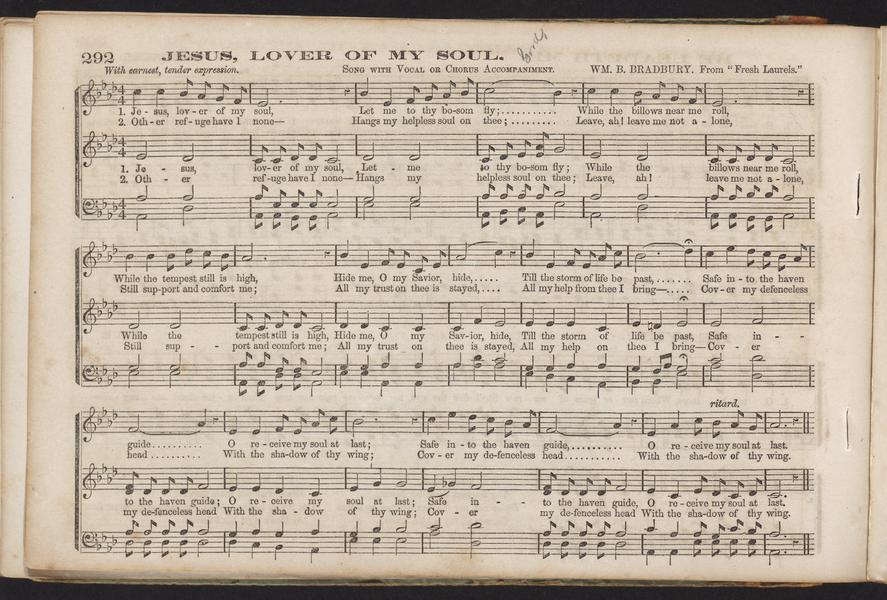 292 JESUS, LOVER OF MY SOUL.
With earnest, tender expression. SONG WITH VOCAL OR CHORUS ACCOMPANIMENT. WM. B. BRADBURY. From "Fresh Laurels."
1. Je - sus, lov - er of my soul, Let me to thy bo-som fly;.......... While the billows near me roll,
2. Oth - er ref - uge have I none— Hangs my helpless soul on thee;......... Leave, ah! leave me not a - lone,
1. Je - sus, lov-er of my soul, Let - me to thy bo-som fly; While the billows near me roll,
2. Oth - er ref-uge have I none—Hangs my helpless soul on thee; Leave, ah! leave me not a - lone,
While the tempest still is high, Hide me, O my Savior, hide,..... Till the storm of life be past,....... Safe in - to the haven
Still sup-port and comfort me; All my trust on thee is stayed,.... All my help from thee I bring—..... Cov - er my defenceless
While the tempest still is high, Hide me, O my Sav-ior, hide, Till the storm of life be past, Safe in - -
Still sup - - port and comfort me; All my trust on thee is stayed, All my help on thee I bring—Cov - er
ritard.
guide.......... O re - ceive my soul at last; Safe in - to the haven guide,.......... O re - ceive my soul at last.
head.......... With the sha-dow of thy wing; Cov - er my de-fenceless head............ With the sha-dow of thy wing.
to the haven guide; O re - ceive my soul at last; Safe in - - to the haven guide, O re - ceive my soul at last.
my de-fenceless head With the sha - dow of thy wing; Cov - er my de-fenceless head With the sha-dow of thy wing.